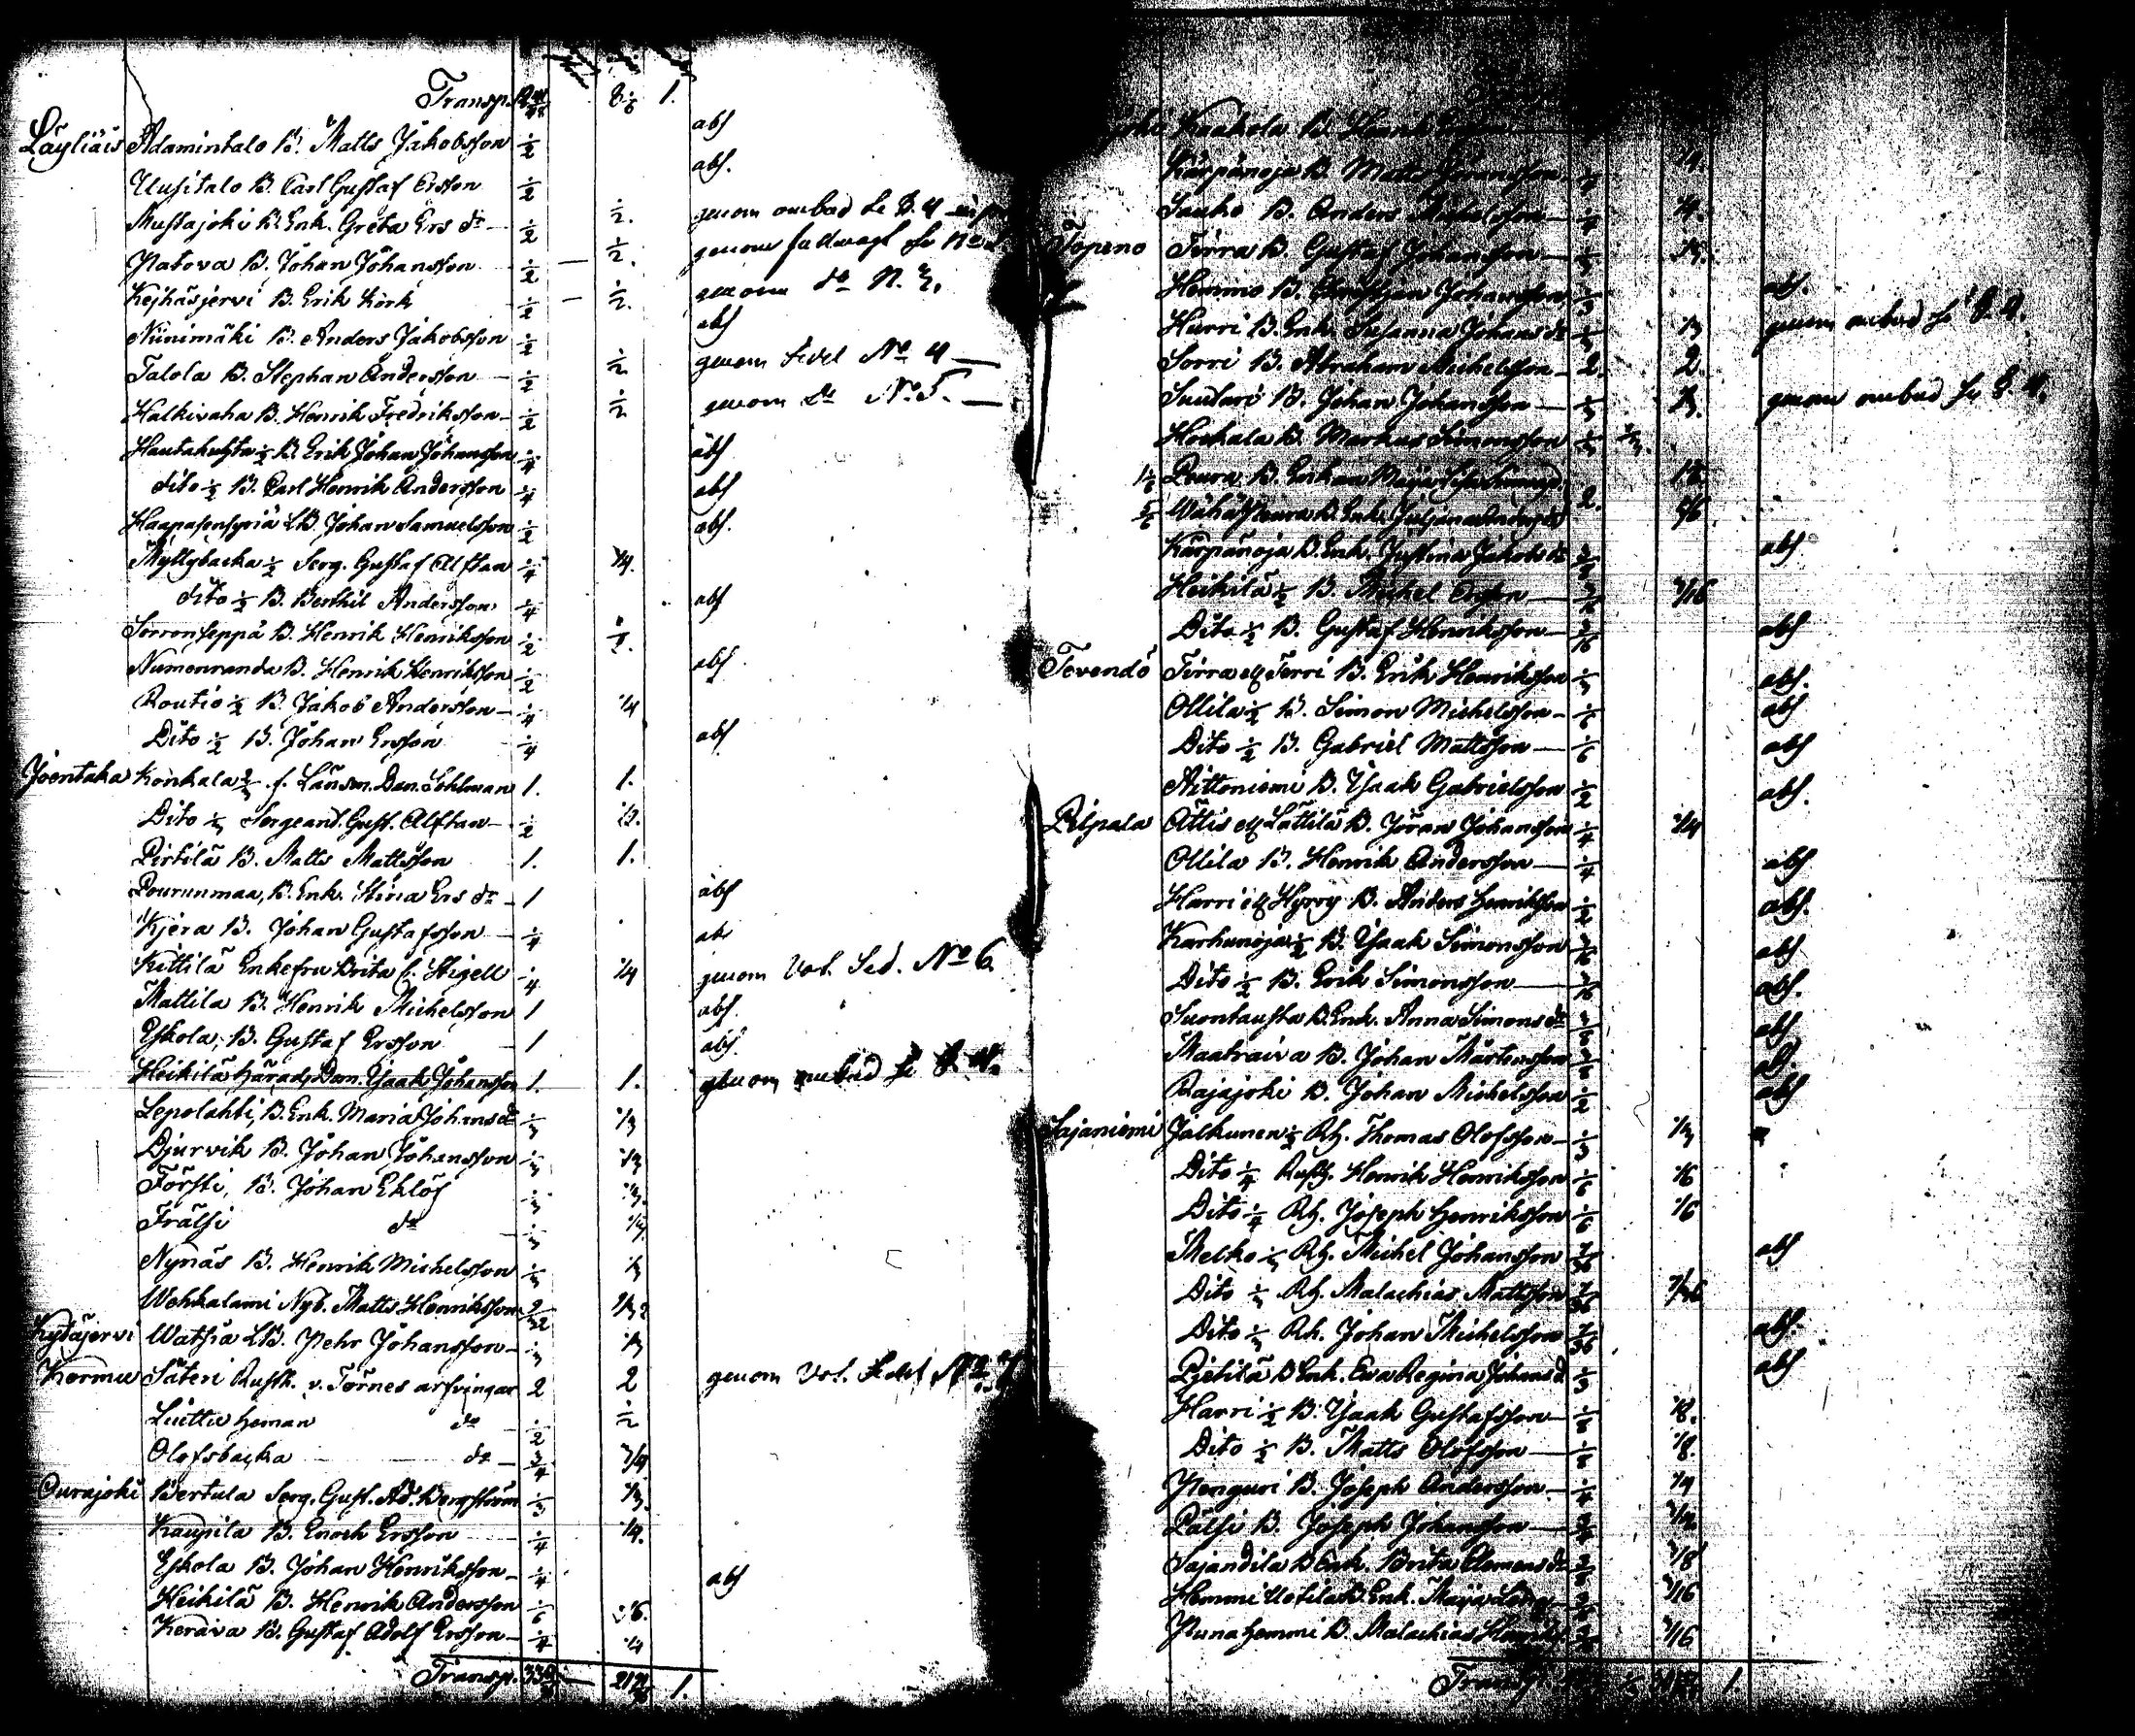 Transp. 8 1/6 1.
Läyliäis Adamintalo B. Matts Jakobsson 1/2 abs
Uusitalo B. Carl Gustaf Ersson 1/2 abs.
Mustajoki B. Enk. Greta Ers dr 1/2 1/2. genom ombud
Natova B. Johan Johansson 1/2 — 1/2. genom fullmagt
Kejhäsjervi B. Erik Kirk 1/2 — 1/2. genom do N. 3.
Niinimäki B. Anders Jakobsson 1/2 abs
Talola B. Stephan Andersson 1/2 1/2 genom Sedel No 4 —
Halkivaha B. Henrik Fredriksson 1/2 1/2 genom do No 5. —
Hautakulta 1/2 B. Erik Johan Johansson 1/4 abs
dito 1/2 B. Carl Henrik Andersson 1/4 abs
Haapasensyriä LB. Johan Samuelsson 1/2 abs.
Myllybacka 1/2 Serg. Gustaf Alftan 1/4 1/4.
dito 1/2 B. Berthil Andersson 1/4 abs
Sorronseppä B. Henrik Henriksson 1/2 1/2.
Numenranda B. Henrik Henriksson 1/2 abs.
Routio 1/2 B. Jakob Andersson 1/4 1/4
Dito 1/2 B. Johan Ersson 1/4 abs
Joentaka Konkala 2/3 f. Länsm. Dan. Sohlman 1. 1.
Dito 1/3 Sergeant. Gust. Alftan 1/2
Pirtilä B. Matts Mattsson 1. 1.
Pourunmaa, B. Enk. Stina Ers dr 1 abs
Kjera B. Johan Gustafsson 1/4 abs
Kittilä Enkefru Brita C. Stigell 1/4 1/4 genom Vot. Sed. No 6.
Mattila B. Henrik Michelsson 1 abs.
Yskola, B. Gustaf Ersson 1 abs.
Heikilä Härads Dom. Isaak Johansson 1. 1. genom ombud
Lepolahti, B. Enk. Maria Johans dr 1/3 1/3
Djurvik B. Johan Johansson 1/3 1/3
Försti, B. Johan Eklöf 1/3 1/3.
Frälsi do 1/3 1/3
Nynäs B. Henrik Michelsson 1/3 1/3
Wehkalami Nyb. Matts Henriksson
Kytäjervi Watsia LB. Pehr Johansson 1/3 1/3
Kormu Säteri Rusth. v. Törnes arfvingar 2 2 genom Vot. Sedel No 7
Luittu heman do 1/2 1/2
Olofsbacka do 3/4 3/4
Ourajoki Bertula Serg. Gust. Ad. Bergström 1/3 1/3.
Kaupila B. Enoch Ersson 1/4 1/4.
Yskola B. Johan Henriksson 1/4 abs
Heikilä B. Henrik Andersson 1/6 1/6.
Kerava B. Gustaf Adolf Ersson 1/4 1/4
Transp. 1.
Kaakola B. Henrik
Kärpänoja B. Matts Göransson 1/4 1/4.
Sauko B. Anders Michelsson 1/4 1/4.
Topeno Tirra B. Gustaf Johansson 1/3 1/3.
Hemmo B. Christjan Johansson 1/3 abs.
Hurri B. Enk. Susanna Johans dr 1/3 1/3 genom ombud
Sorri B. Abraham Michelsson 2. 2.
Suutari B. Johan Johansson 1/3 1/3. genom ombud
Horkala B. Markus Simonsson 1/3 1/3.
1 1/6 Peura B. Enkan Maja Lisa
5/6 Wähäpeura B. Enk. Juliana Anders dr 2. 5/6
Kärpänoja B. Enk. Justina Jakobs dr abs.
Heikilä 1/2 B. Michel Ersson 3/16 3/16
Dito 1/2 B. Gustaf Henriksson 3/16 abs
Tevendö Tirra ell Terri B. Erik Henriksson 1/3 abs.
Ollila 1/2 B. Simon Michelsson 1/6 abs
Dito 1/2 B. Gabriel Mattsson 1/6 abs
Aittoniemi B. Isaak Gabrielsson 1/2 abs.
Pilpala Attis ell Lättilä B. Jöran Johansson 1/4 1/4
Ollila B. Henrik Andersson 1/4 abs.
Harri ell Hyrry B. Anders Henriksson 1/2 abs.
Karhunoja 1/2 B. Isaak Simonsson 3/16 abs
Dito 1/2 B. Erik Simonsson 3/16 abs.
Suontausta B. Enk. Anna Simons dr 3/8 abs
Maatraiva B. Johan Mårtensson 3/8 abs.
Rajajoki B. Johan Michelsson 1/2 abs
Sajaniemi Jalkunen 1/2 Rh. Thomas Olofsson 1/3 1/3
Dito 1/4 Rusth. Henrik Henriksson 1/6 1/6
Dito 1/4 Rh. Joseph Henriksson 1/6 1/6
Melko 1/3 Rh. Michel Johansson 7/36 abs
Dito 1/3 Rh. Malachias Mattsson 7/36 7/36
Dito 1/3 Rh. Johan Michelsson 7/36 abs.
Pjetilä B Enk. Eva Regina Johans d 1/3 abs
Harri 1/2 B. Isaak Gustafsson 1/8 1/8.
Dito 1/2 B. Matts Olofsson 1/8 1/8.
Penguri B. Joseph Andersson 1/4 1/4
Pälsi B. Joseph Johansson
Sajandila B Enk. Brita Clemens dr 3/8 3/8
Hemmi Uotila B. Enk. Maja 3/16
Puna hemmi B. Malachias 3/16
Transp. 1